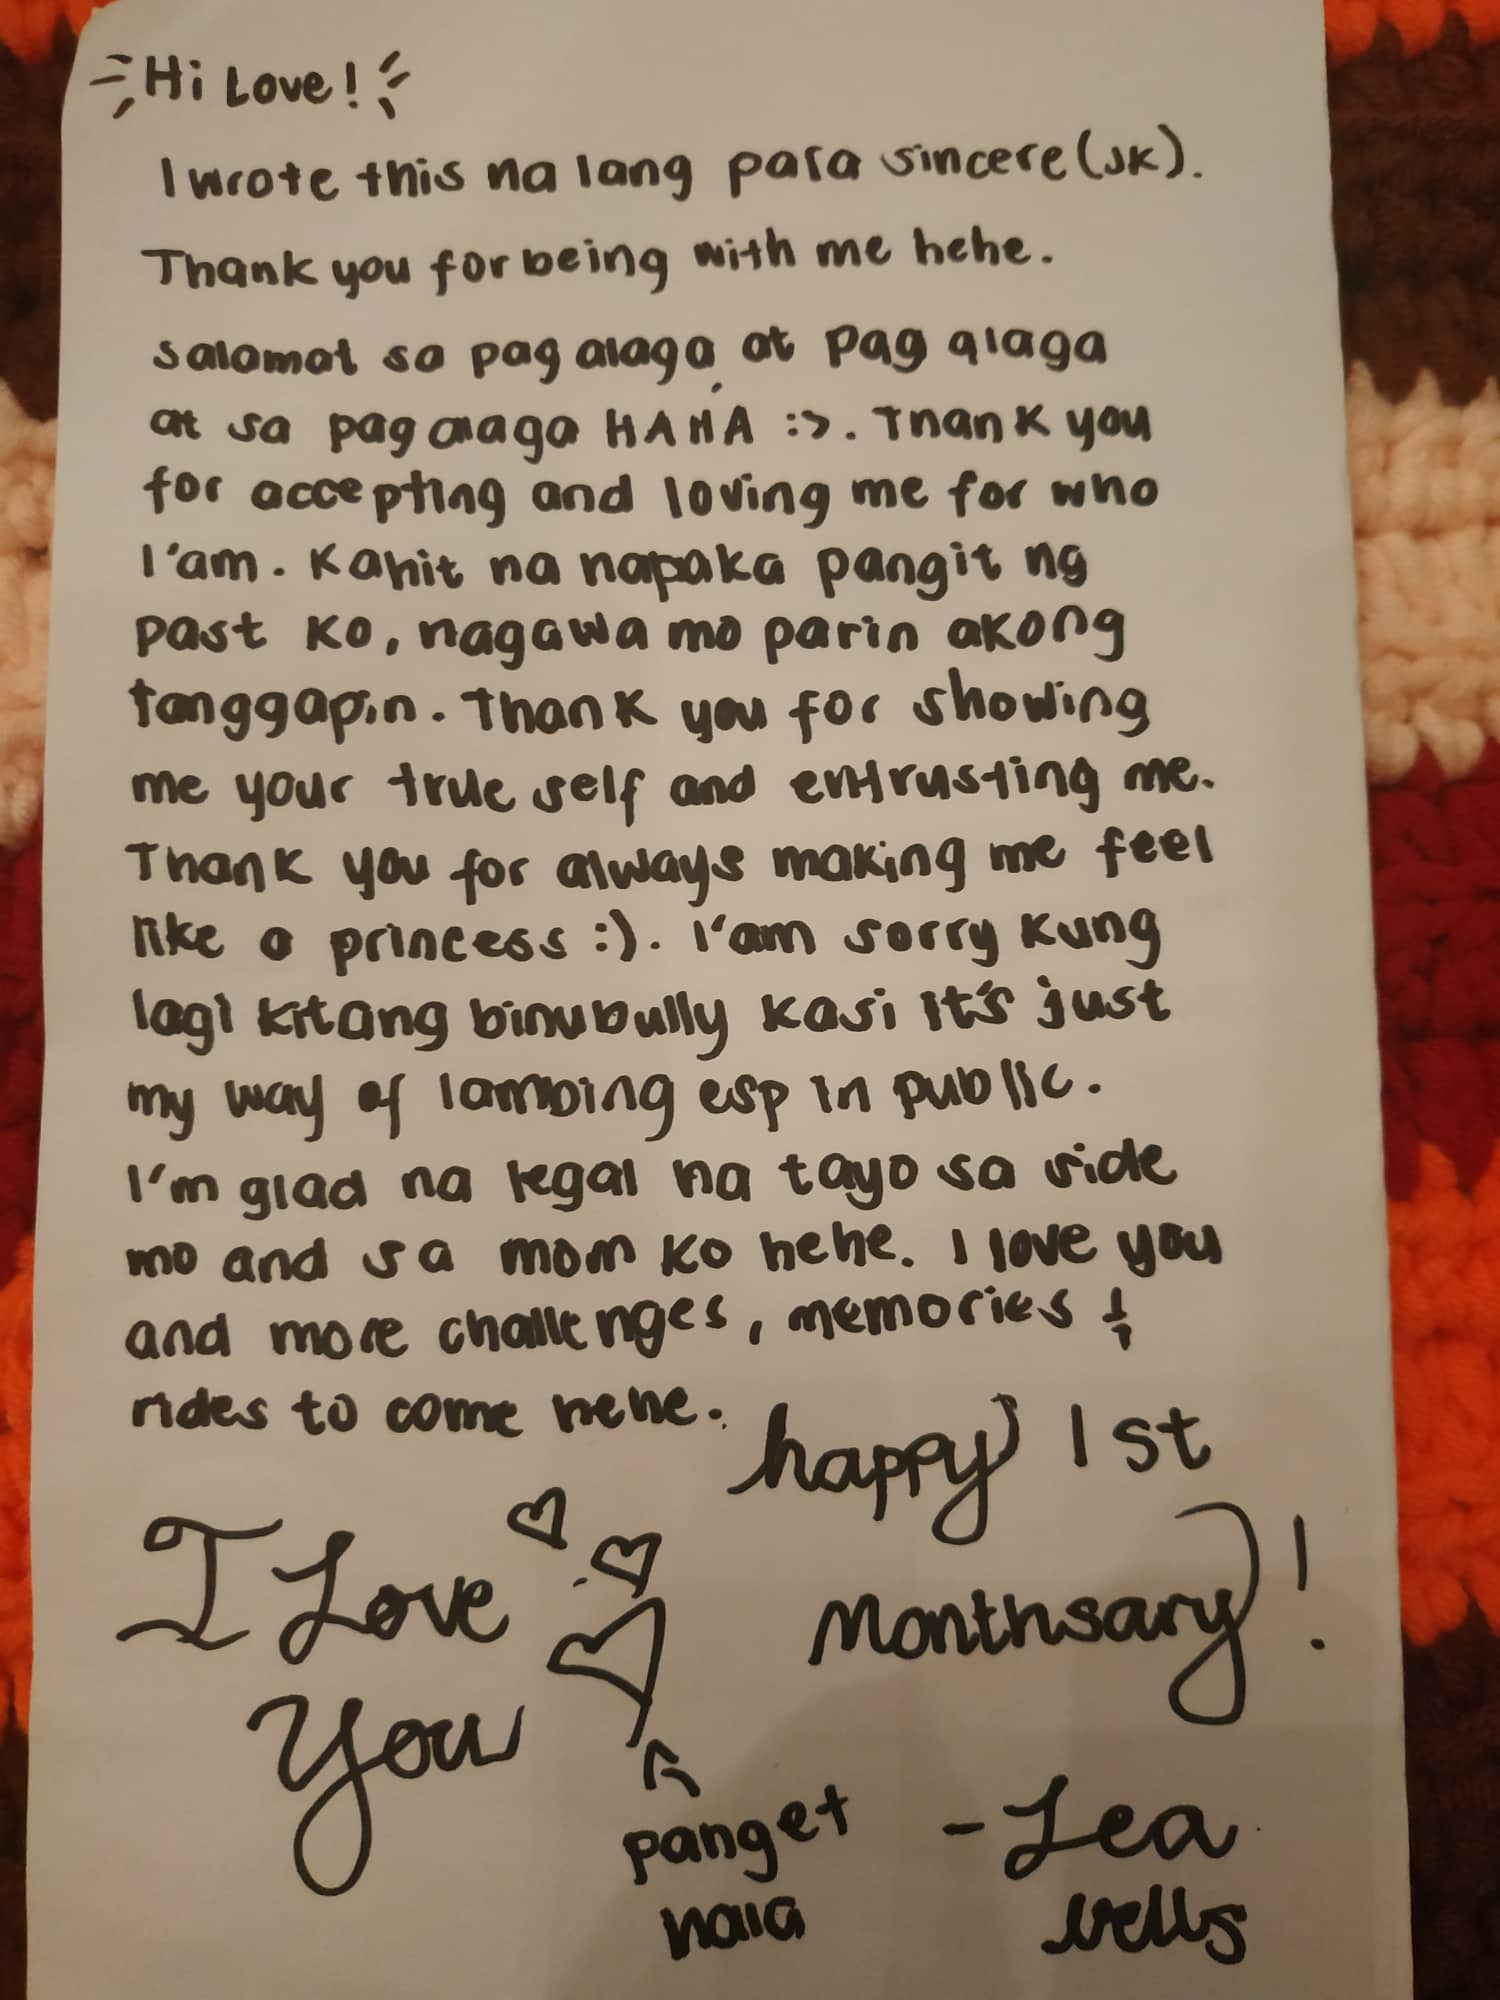 Hi Love!
I wrote this na lang para sincere (JK).
Thank you for being with me hehe.
salamat sa pag alaga, at pag alaga
at sa pag alaga HAHA :>. Thank you
for accepting and loving me for who
I'am. Kahit na napaka pangit ng
past ko, nagawa mo parin akong
tanggapin. Thank you for showing
me your true self and entrusting me.
Thank you for always making me feel
like a princess :). I'am sorry kung
lagi kitang binubully kasi it's just
my way of lambing esp in public.
I'm glad na legal na tayo sa side
mo and sa mom ko hehe. I love you
and more challenges, memories &
rides to come hehe.
happy 1st
Monthsary!
I Love
You
panget
hala
- Lea
bells